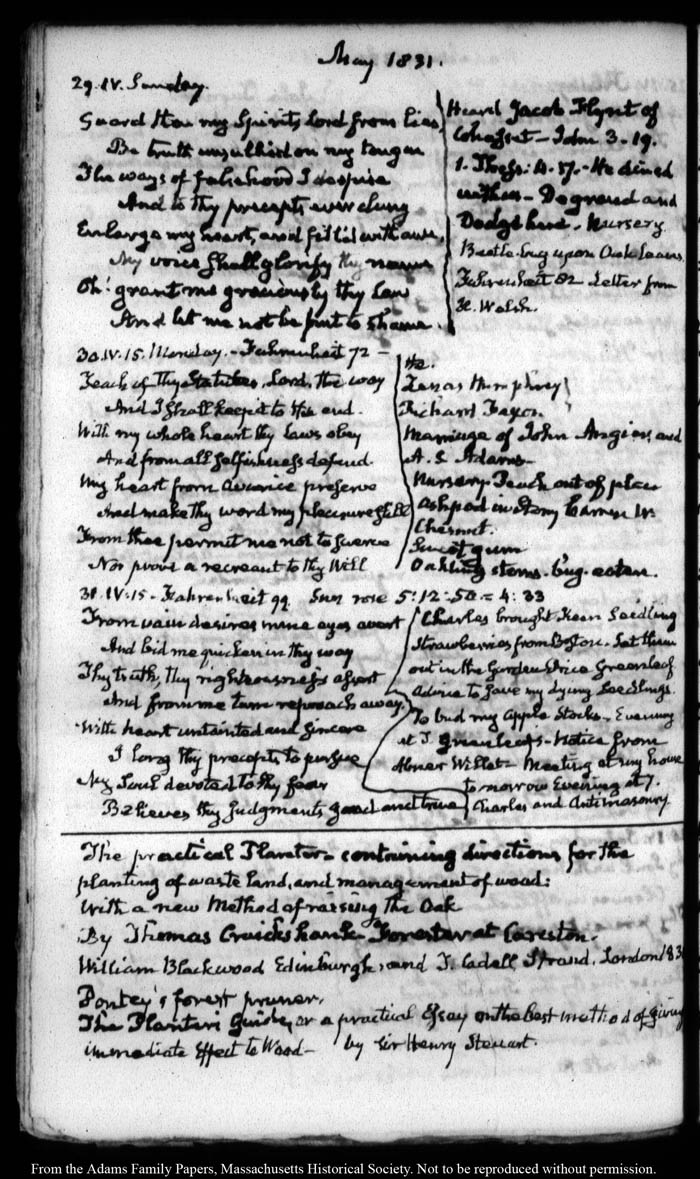 May 1831.
29. IV. Sunday.
Guard thou my Spirit, Lord from lies
Be truth unsullied on my tongue
The ways of falsehood I despise
And to thy precepts ever clung
Enlarge my heart, and fill it with awe,
My voice shall glorify thy name
Oh! grant me graciously thy Law
And let me not be put to shame.
Heard Jacob Flynt of
Cohasset — John 3. 19.
1. Thess: 4. 57. — He dined
with us — Degrand and
Dodge here. Nursery.
Beetle-bug upon Oak Leaves.
Fahrenheit 82 Letter from
H. Welsh.
30. IV. 15. Monday. — Fahrenheit 72 —
Teach of thy Statutes, Lord, the way
And I shall keep it to the end.
With my whole heart thy laws obey
And from all selfishness defend.
My heart from avarice preserve
And make thy word my pleasure still
From thee permit me not to swerve
Nor prove a recreant to thy Will
Lenas Humphrey
Richard Faxon.
Marriage of John Angier, and
A. E Adams —
Nursery Peach out of place
in Stony
Chesnut.
gum
Oakling stems. bug-eaten.
31. IV:15 — Fahrenheit 99 Sun rose 5:12:50 = 4:33
From vain desires mine eyes avert
And bid me quicken in thy way
Thy truth, thy righteousness assert
And from me turn reproach away
With heart untainted and sincere
I long thy precepts to pursue
My Soul devoted to thy fear
Believes thy Judgments good and true
Charles brought Keen Seedling
Strawberries from Boston. Set them
out in the Garden Price Greenleaf
Advice to save my dying Seedlings.
To bud my Apple Stocks — Evening
at T. Greenleaf's — Notice from
Abner Willet — Meeting at my house
tomorrow Evening at 7.
Charles and Antimasonry
The practical Planter — containing directions for the
planting of waste land, and management of wood:
With a new Method of raising the Oak
By Thomas Cruickshank Forester at Careston.
William Blackwood Edinburgh, and T. Cadell Strand, London 183
Pontey's forest pruner.
The Planter's Guide, or a practical Essay on the best method of giving
immediate Effect to Wood — by Sir Henry Steuart.
From the Adams Family Papers, Massachusetts Historical Society. Not to be reproduced without permission.